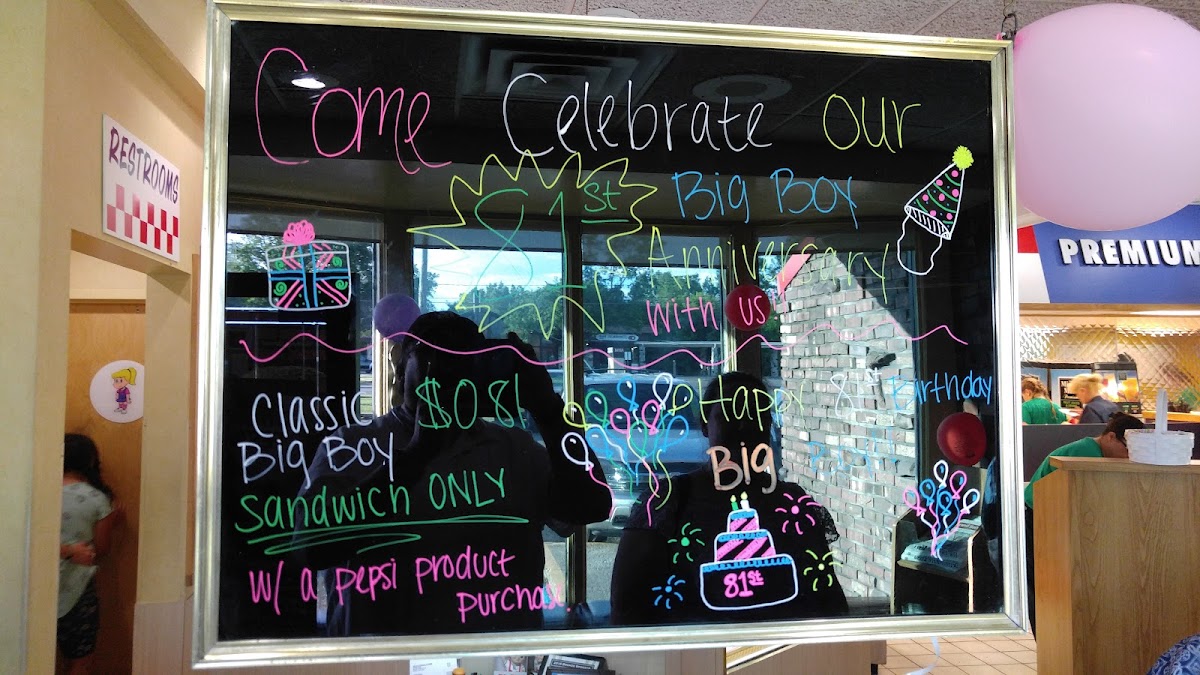 RESTROOMS
Come Celebrate our
81st Big Boy
Anniversary
with us
PREMIUM
Classic $0.81
Big Boy
Sandwich ONLY
w/ a pepsi product
purchase.
Happy 81st Birthday
Big
81st